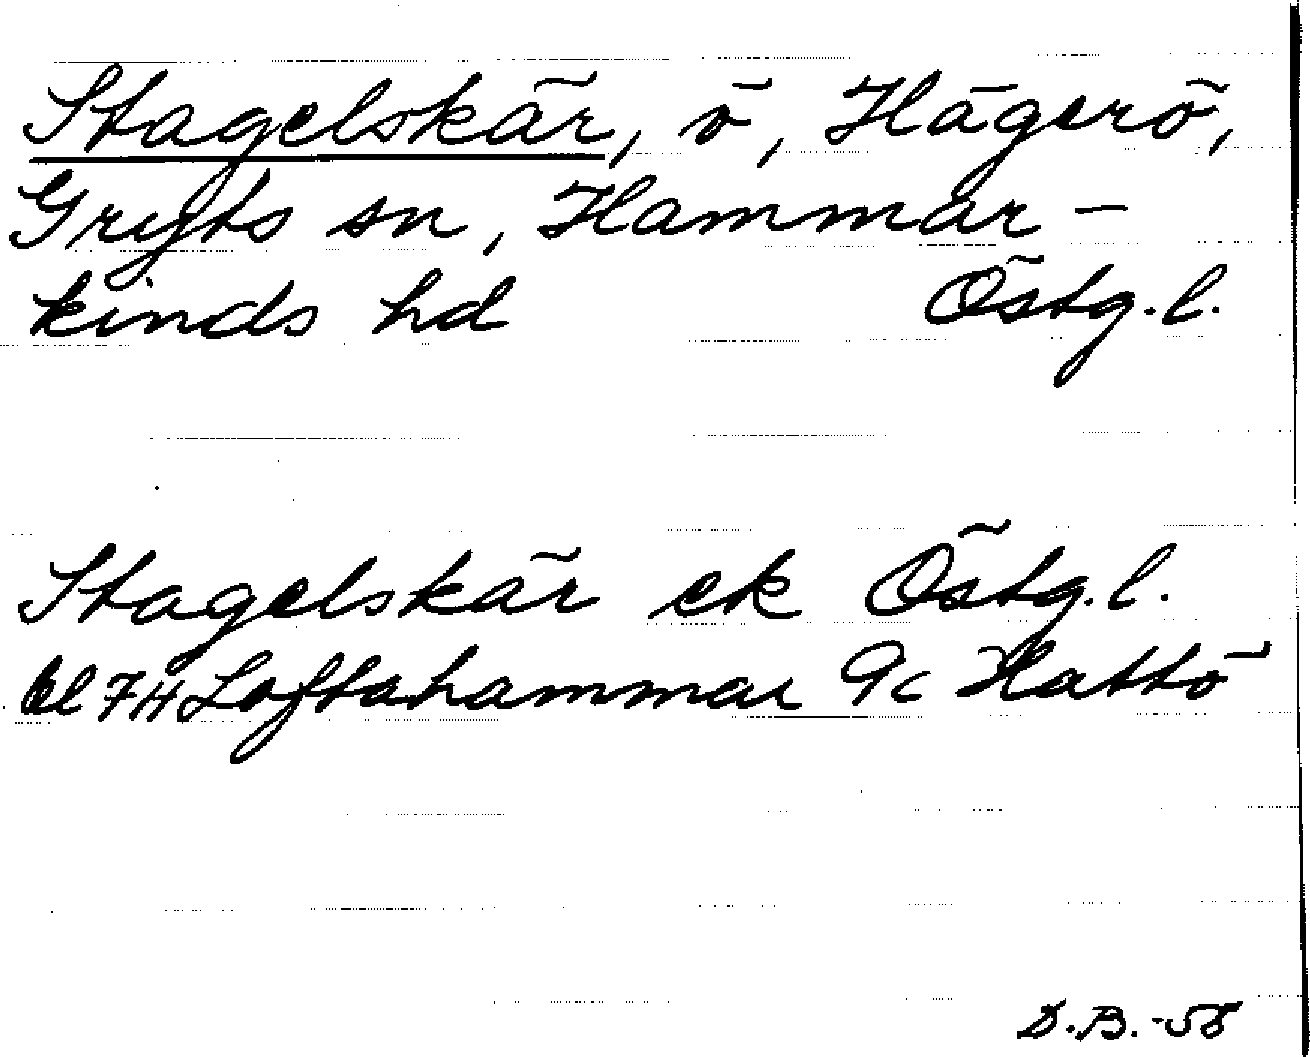 Stagelskär, ö, Hägerö,
Gryts sn, Hammar-
kinds hd Östg.l.
Stagelskär ek Östg.l.
bl 7H Loftahammar 9c Hattö
D.B.-58